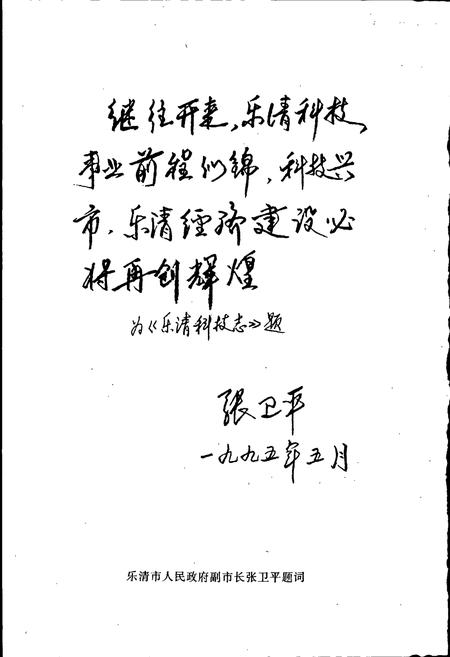 继往开来,乐清科技
事业前程似锦,科技兴
市,乐清经济建设必
将再创辉煌
为《乐清科技志》题
张卫平
一九九五年五月
乐清市人民政府副市长张卫平题词